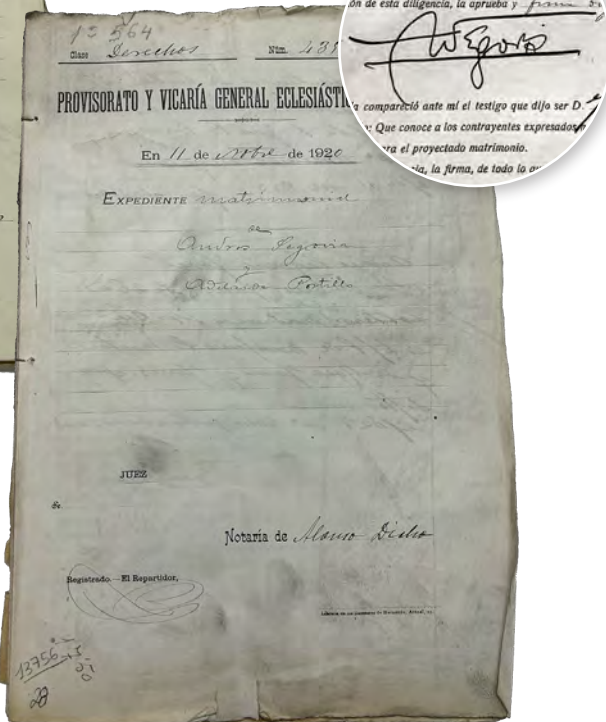 ón de esta diligencia, la aprueba y firma
Segovia
compareció ante mí el testigo que dijo ser D.
: Que conoce a los contrayentes expresados
ra el proyectado matrimonio.
ia, la firma, de todo lo
564
Clase Derechos Núm. 439
PROVISORATO Y VICARÍA GENERAL ECLESIÁSTIC
En 11 de de 1920
EXPEDIENTE matrimonial
de
Andrés Segovia
y
Adelaida Portillo
JUEZ
Sr.
Notaría de Alonso
Registrado.—El Repartidor,
13756